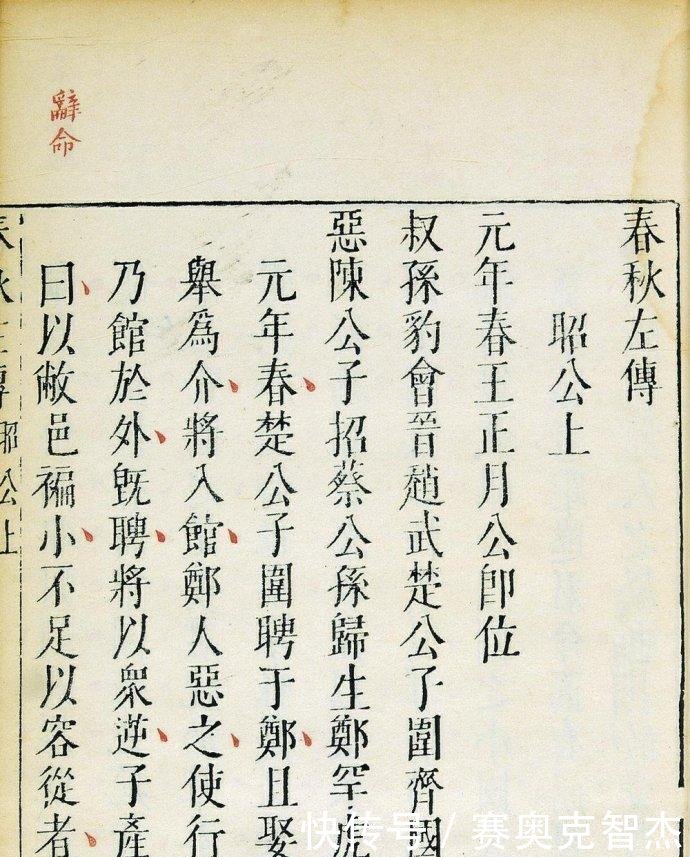 春秋左傳
昭公上
元年春王正月公即位
叔孫豹會晉趙武楚公子圍齊國
惡陳公子招蔡公孫歸生鄭罕虎
元年春楚公子圍聘于鄭且娶
舉為介將入館鄭人惡之使行
乃館於外既聘將以眾逆子產
曰以敝邑褊小不足以容從者
春秋左傳昭公上
辭命
快传号/赛奥克智杰